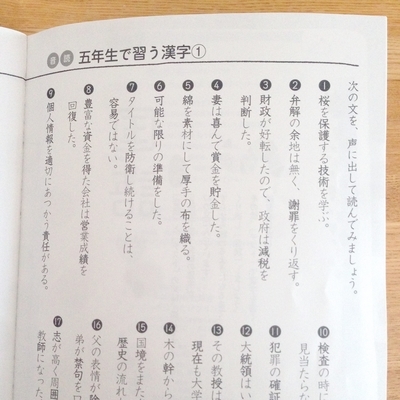 音読 五年生で習う漢字①
次の文を、声に出して読んでみましょう。
❶桜を保護する技術を学ぶ。
❷弁解の余地は無く、謝罪をくり返す。
❸財政が好転したので、政府は減税を
判断した。
❹妻は喜んで賞金を貯金した。
❺綿を素材にして厚手の布を織る。
❻可能な限りの準備をした。
❼タイトルを防衛し続けることは、
容易ではない。
❽豊富な資金を得た会社は営業成績を
回復した。
❾個人情報を適切にあつかう責任がある。
❿検査の時に
見当たらな
⓫犯罪の確証
⓬大統領はい
⓭その教授は
現在も大学
⓮木の幹から
⓯国境をまた
歴史の流れ
⓰父の表情が険
弟が禁句を口
⓱志が高く周囲
教師になった